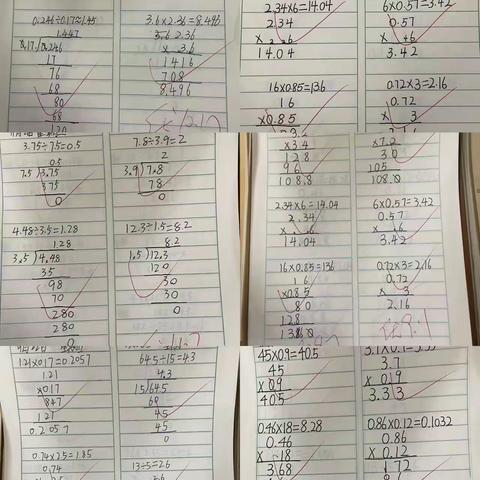 0.246÷0.17≈1.45
1.447
0.17 0.246
17
76
68
80
68
120
3.6×2.36=8.496
2.36
× 3.6
1416
708
8.496
2.34×6=14.04
2.34
× 6
14.04
6×0.57=3.42
0.57
× 6
3.42
16×0.85=136
16
×0.85
0.72×3=2.16
0.72
× 3
3.75÷7.5=0.5
0.5
7.5 3.75
375
0
7.8÷3.9=2
2
3.9 7.8
78
0
4.48÷3.5=1.28
1.28
3.5 4.48
35
98
70
280
280
0
12.3÷1.5=8.2
8.2
1.5 12.3
120
30
30
0
×3.4
128
96
108.8
×7.2
30
105
108.0
2.34×6=14.04
2.34
× 6
14.04
6×0.57=3.42
0.57
× 6
3.42
16×0.85=136
16
×0.85
80
128
0.72×3=2.16
0.72
× 3
2.16
121×0.17=0.2057
121
×017
847
121
0.2057
64.5÷15=4.3
4.3
15 64.5
60
45
45
0
0.74×2.5=1.85
0.74
13÷5=2.6
45×0.9=40.5
45
×0.9
405
3.7
× 0.9
3.33
0.46×18=8.28
0.46
× 18
368
0.86×0.12=0.1032
0.86
× 0.12
172